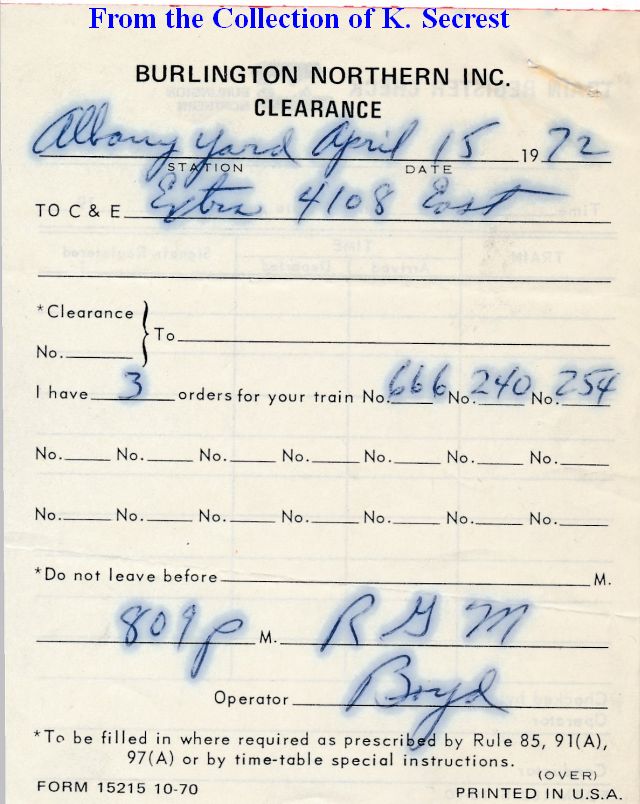 From the Collection of K. Secrest
BURLINGTON NORTHERN INC.
CLEARANCE
Albany Yard April 15 1972
STATION DATE
TO C & E Extra 4108 East
*Clearance
No. } To
I have 3 orders for your train No. 666 No. 240 No. 254
No. No. No. No. No. No. No.
No. No. No. No. No. No. No.
*Do not leave before M.
809p M. R G M
Operator Boyd
*To be filled in where required as prescribed by Rule 85, 91(A),
97(A) or by time-table special instructions.
(OVER)
FORM 15215 10-70 PRINTED IN U.S.A.